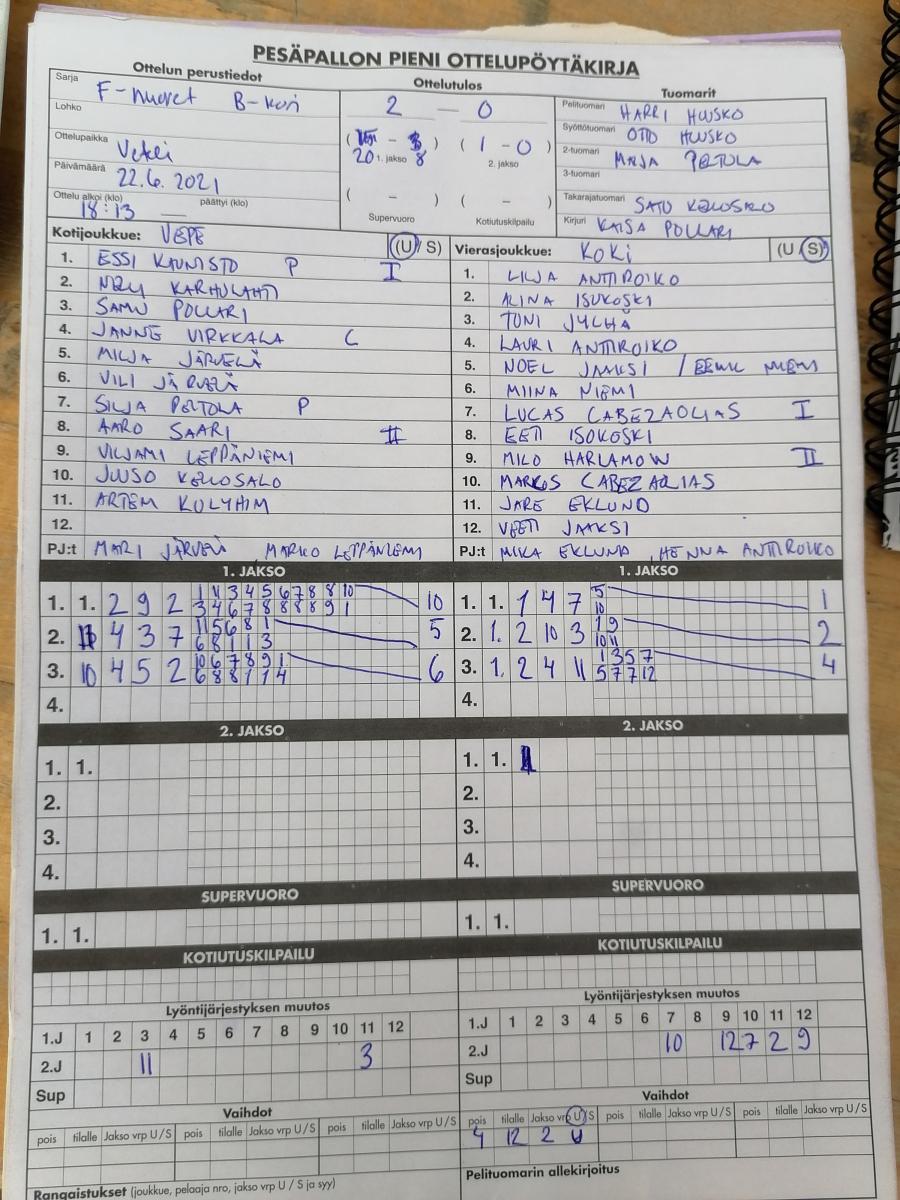 PESÄPALLON PIENI OTTELUPÖYTÄKIRJA
Ottelun perustiedot
Ottelutulos
Tuomarit
Sarja F-nuoret B-kon
Lohko
Ottelupaikka Veteli
Päivämäärä 22.6. 2021
Ottelu alkoi (klo) 18:13 päättyi (klo)
2 — 0
( - ) ( 1 - 0 )
20 1. jakso 8 2. jakso
( - ) ( - )
Supervuoro Kotiutuskilpailu
Pelituomari HARRI HUUSKO
Syöttötuomari OTTO HUUSKO
2-tuomari MAIJA PELTOLA
3-tuomari
Takarajatuomari SATU KELLOSALO
Kirjuri KAISA POLLARI
Kotijoukkue: VEPE (U / S)
1. ESSI KAUNISTO P I
2. KARHULAHTI
3. SAMU POLLARI
4. JANNE VIRKKALA C
5. MILJA JÄRVELÄ
6. VILI JÄRVELÄ
7. SILJA PELTOLA P
8. AARO SAARI II
9. VILJAMI LEPPÄNIEMI
10. JUUSO KELLOSALO
11. ARTEM KOLYHIM
12.
PJ:t MARI JÄRVELÄ MARKO LEPPÄNIEMI
Vierasjoukkue: KOKI (U / S)
1. LILJA ANTTIROIKO
2. ALINA ISOKOSKI
3. TONI JYLHÄ
4. LAURI ANTTIROIKO
5. NOEL JAAKSI / EEMIL NIEMI
6. MIINA NIEMI
7. LUCAS CABEZAOLIAS I
8. EETI ISOKOSKI
9. MILO HARLAMOW II
10. MARKOS CABEZAOLIAS
11. JARE EKLUND
12. VEETI JAAKSI
PJ:t MIKA EKLUND, HENNA ANTTIROIKO
1. JAKSO
1. 1. 2 9 2 1 1 3 4 5 6 7 8 8 10 10
3 4 6 7 8 8 8 8 9 1
2. 4 3 7 11 5 6 8 1 5
6 8 1 1 3
3. 10 4 5 2 10 6 7 8 9 1 6
6 8 8 1 1 4
4.
1. JAKSO
1. 1. 1 4 7 5 1
10
2. 1. 2 10 3 1 9 2
10 11
3. 1. 2 4 11 1 3 5 7 4
5 7 7 12
4.
2. JAKSO
1. 1.
2.
3.
4.
2. JAKSO
1. 1.
2.
3.
4.
SUPERVUORO
1. 1.
SUPERVUORO
1. 1.
KOTIUTUSKILPAILU
KOTIUTUSKILPAILU
Lyöntijärjestyksen muutos
1.J 1 2 3 4 5 6 7 8 9 10 11 12
2.J 11 3
Sup
Lyöntijärjestyksen muutos
1.J 1 2 3 4 5 6 7 8 9 10 11 12
2.J 10 12 7 2 9
Sup
Vaihdot
pois tilalle Jakso vrp U / S pois tilalle Jakso vrp U / S pois tilalle Jakso vrp U / S
Vaihdot
pois tilalle Jakso vrp U / S pois tilalle Jakso vrp U / S pois tilalle Jakso vrp U / S
4 12 2 U
Rangaistukset (joukkue, pelaaja nro, jakso vrp U / S ja syy)
Pelituomarin allekirjoitus